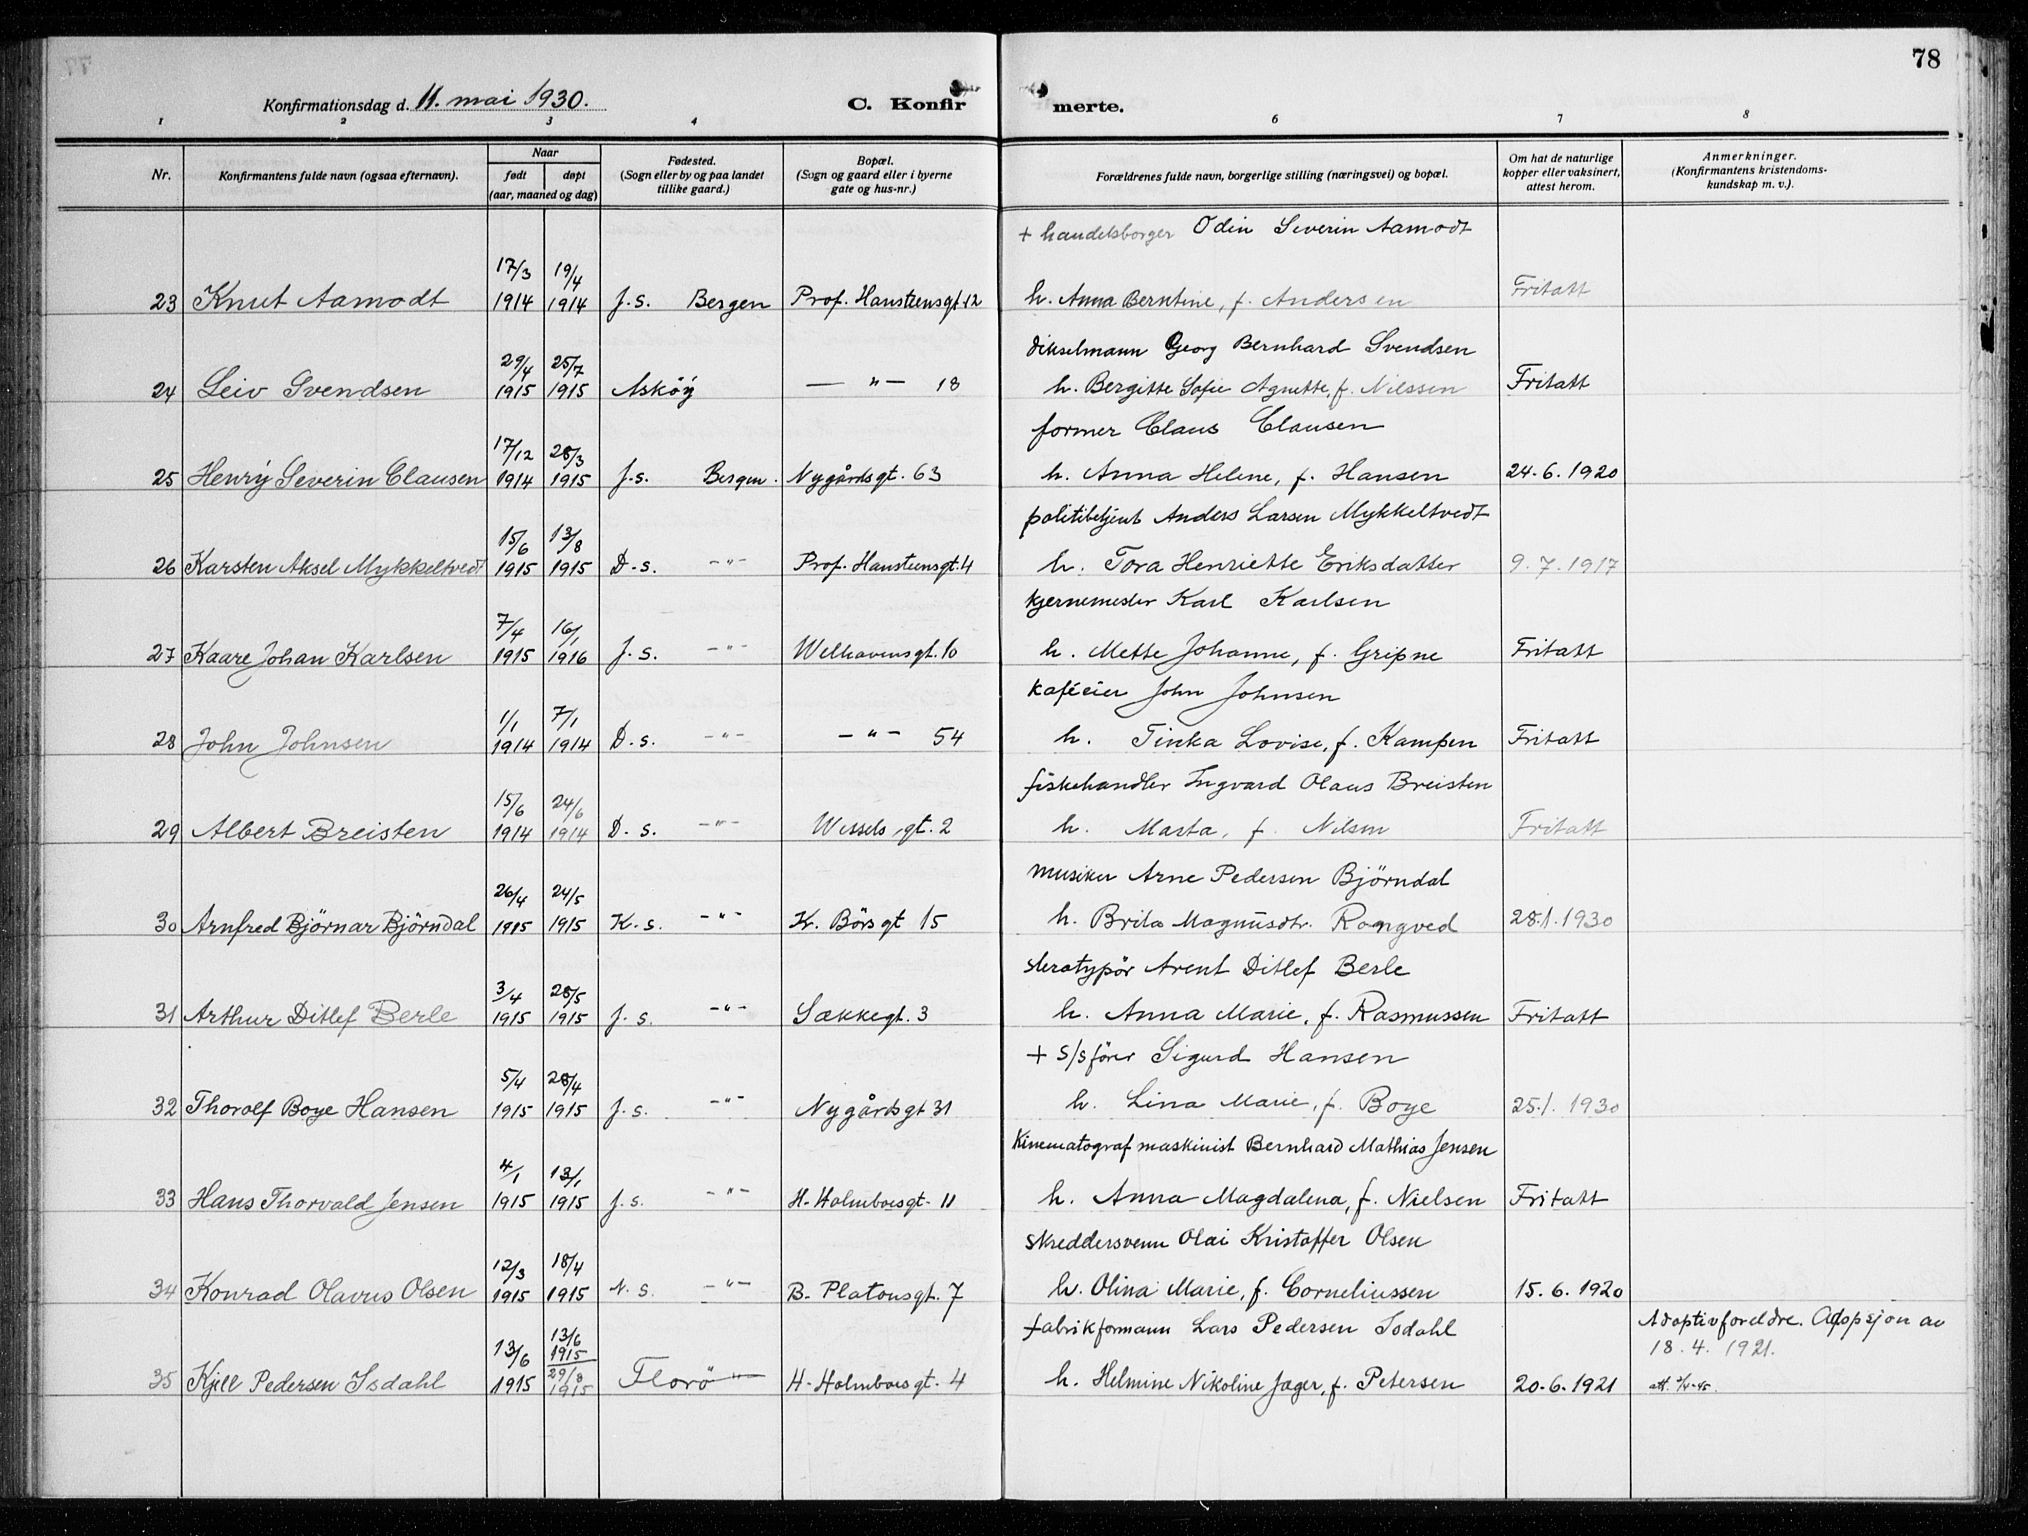 78
Konfirmationsdag d. 11. mai 1930.
C. Konfirmerte.
1 2 3 4 6 7 8
Nr.
Konfirmantens fulde navn (ogsaa efternavn).
Naar
født døpt
(aar, maaned og dag)
Fødested.
(Sogn eller by og paa landet
tillike gaard.)
Bopæl.
(Sogn og gaard eller i byerne
gate og hus-nr.)
Forældrenes fulde navn, borgerlige stilling (næringsvei) og bopæl.
Om hat de naturlige
kopper eller vaksinert,
attest herom.
Anmerkninger.
(Konfirmantens kristendoms-
kundskap m. v.).
+ handelsborger Odin Severin Aamodt
17/3 19/4
23 Knut Aamodt 1914 1914 J.s. Bergen Prof. Hansteensgt. 12 h. Anna Berntine, f. Andersen Fritatt
dikselmann Georg Bernhard Svendsen
29/4 25/7
24 Leiv Svendsen 1915 1915 Askøy — " — 18 h. Bergitte Sofie Agnette, f. Nilssen Fritatt
former Claus Clausen
17/12 28/3
25 Henry Severin Clausen 1914 1915 J.s. Bergen. Nygårdsgt. 63 h. Anna Helene, f. Hansen 24.6.1920
politibetjent Anders Larsen Mykkeltvedt
15/6 13/8
26 Karsten Aksel Mykkeltvedt 1915 1915 D.s. —"— Prof. Hansteensgt. 4 h. Tora Henriette Eriksdatter 9.7.1917
kjernemester Karl Karlsen
7/4 16/1
27 Kaare Johan Karlsen 1915 1916 J.s. —"— Welhavensgt. 10 h. Mette Johanne, f. Gripne Fritatt
kaféeier John Johnsen
1/1 7/1
28 John Johnsen 1914 1914 D.s. —"— — " — 54 h. Tinka Lovise, f. Kampen Fritatt
fiskehandler Ingvard Olaus Breisten
15/6 24/6
29 Albert Breisten 1914 1914 D.s. —"— Wessels gt. 2 h. Marta, f. Nilsen Fritatt
musiker Arne Pedersen Björndal
26/4 24/5
30 Arnfred Björnar Björndal 1915 1915 K.s. —"— Kr. Börsgt 15 h. Brita Magnusdtr. Rongved 28.1.1930
sterotypör Arent Ditlef Berle
3/4 28/5
31 Arthur Ditlef Berle 1915 1915 J.s. —"— Sækkegt. 3 h. Anna Marie, f. Rasmussen Fritatt
+ s/s förer Sigurd Hansen
5/4 28/4
32 Thorolf Boye Hansen 1915 1915 J.s. —"— Nygårdsgt 31 h. Lina Marie, f. Boye 25.1.1930
Kinematograf maskinist Bernhard Mathias Jensen
4/1 13/1
33 Hans Thorvald Jensen 1915 1915 J.s. —"— H. Holmboesgt. 11 h. Anna Magdalena, f. Nielsen Fritatt
skreddersvenn Olai Kristoffer Olsen
12/3 18/4
34 Konrad Olavus Olsen 1915 1915 N.s. —"— B. Platousgt. 7 h. Olina Marie, f. Corneliussen 15.6.1920
fabrikformann Lars Pedersen Isdahl Adoptivforeldre. Adopsjon av
13/6 13/6 1915 18.4.1921.
35 Kjell Pedersen Isdahl 1915 29/8 1915 Florö —"— H. Holmboesgt. 4 h. Helmine Nikoline Jæger, f. Petersen 20.6.1921